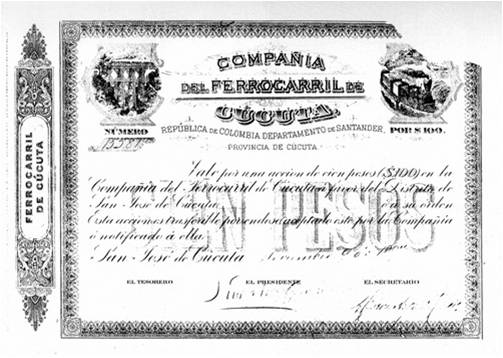 COMPAÑIA
DEL FERROCARRIL DE
CÚCUTA
REPÚBLICA DE COLOMBIA DEPARTAMENTO DE SANTANDER,
PROVINCIA DE CÚCUTA
NÚMERO
POR $ 100.
FERROCARRIL
DE CÚCUTA
Vale por una acción de cien pesos ($100) en la
Compañia del Ferrocarril de Cúcuta á favor del Distrito de
San José de Cúcuta ó á su orden
Esta acción es trasferible por endoso aceptado este por la Compañia
ó notificado á ella.
CIEN PESOS
San José de Cúcuta
EL TESORERO
EL PRESIDENTE
EL SECRETARIO